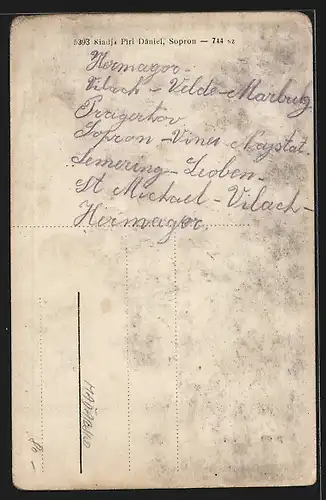 5393 Kiadja Piri Dániel, Sopron — 744 sz
Hermagor -
Vilach - Velde - Marburg
Pragerhov
Sopron - Viner - Naystat.
Semering - Leoben -
St Michael - Vilach -
Hermagor.